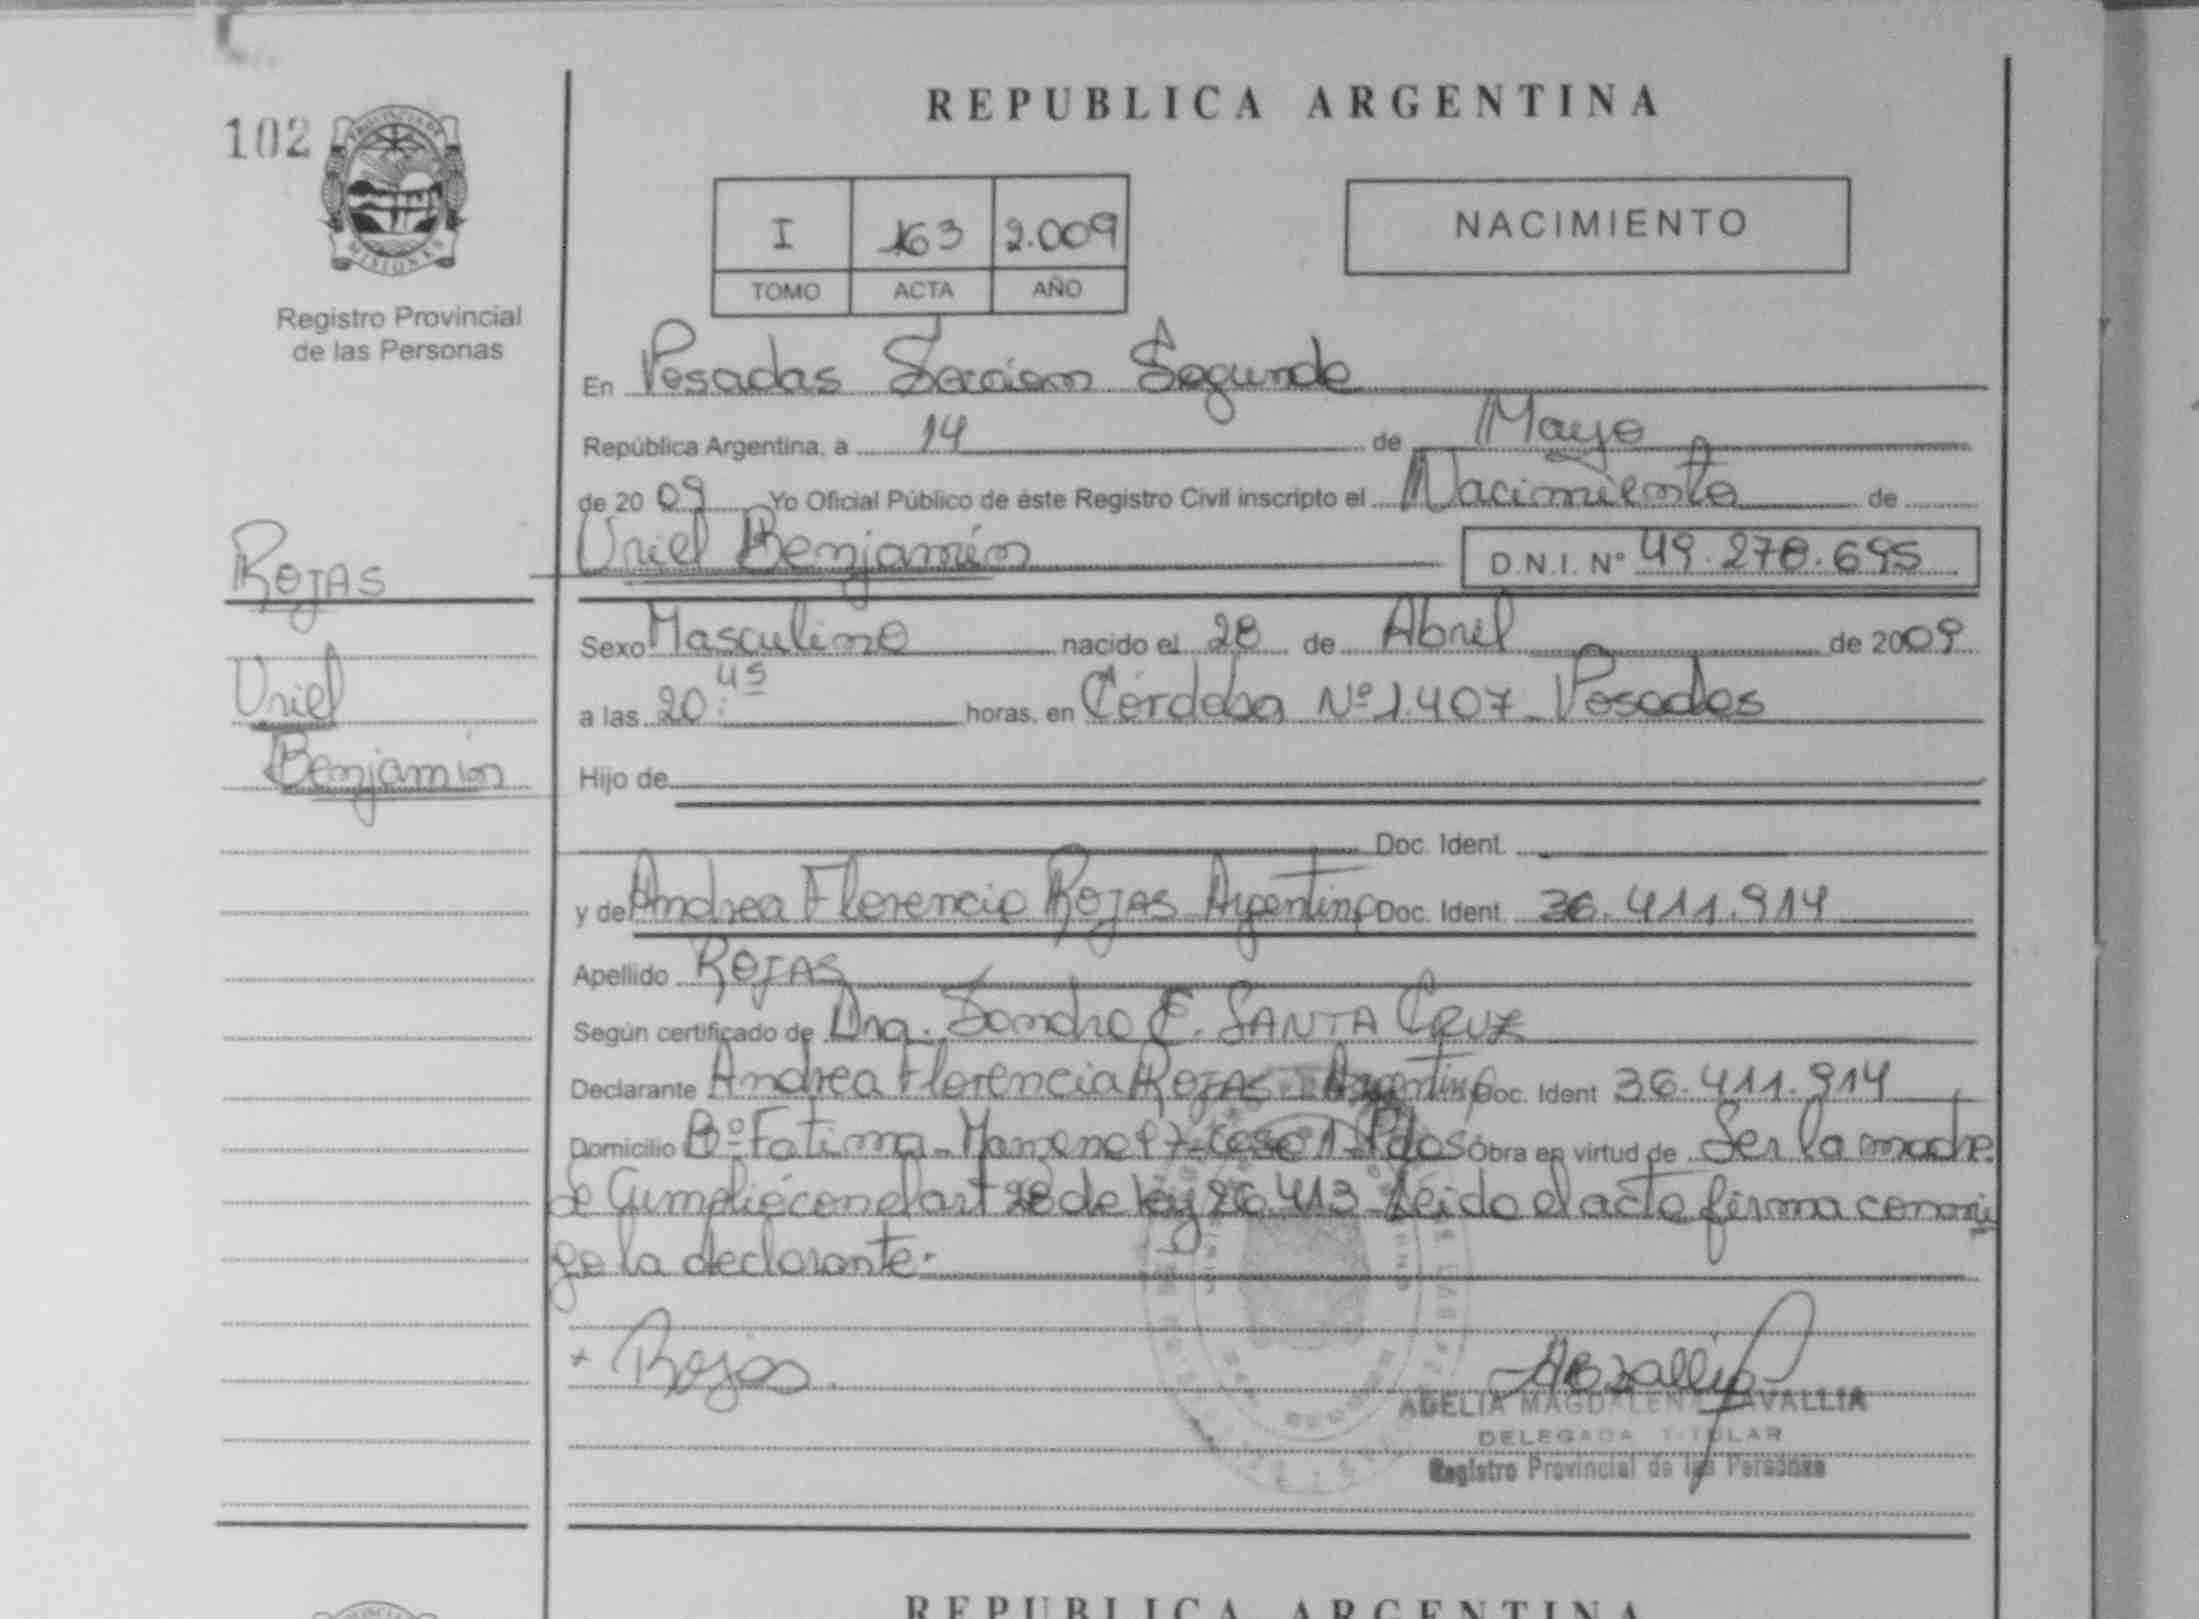 REPUBLICA ARGENTINA
102
PROVINCIA DE
MISIONES
Registro Provincial
de las Personas
I 163 2.009
TOMO ACTA AÑO
NACIMIENTO
En Posadas Sección Segunda
República Argentina, a 14 de Mayo
de 20 09 Yo Oficial Público de éste Registro Civil inscripto el Nacimiento de
Uriel Benjamín D.N.I. Nº 49.278.695
ROJAS
Uriel
Benjamín
Sexo Masculino nacido el 28 de Abril de 2009
a las 20:45 horas, en Córdoba Nº 1.407 - Posadas
Hijo de
Doc. Ident.
y de Andrea Florencia ROJAS Argentina Doc. Ident. 36.411.914
Apellido ROJAS
Según certificado de Dra. Sandra E. SANTA CRUZ
Declarante Andrea Florencia ROJAS - Argentina Doc. Ident 36.411.914
Domicilio Bº Fatima - Casa 1 - Pdas Obra en virtud de Ser la madre.
Se Cumplió con el art 28 de ley 26.413 - Leído el acta firma conmi
go la declarante.
+ Rojas
ADELIA MAGDALENA ZAVALLIA
DELEGADA TITULAR
Registro Provincial de las Personas
REPUBLICA ARGENTINA